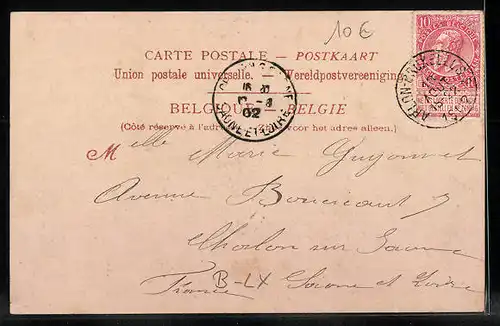 10 €
10
BELGIQUE
CARTE POSTALE — POSTKAART
Union postale universelle. — Wereldpostvereeniging
BELGIQUE BELGIE
(Côté réservé à l'adr voor het adres alleen.)
SAONE-ET-LOIRE
02
Melle Marie Guyonnet
Avenue Boucicaut 7
Chalon sur Saone
France B-LX Saone et Loire